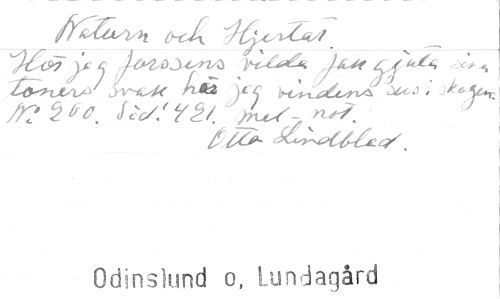 Naturn och Hjertat.
Hör jag forssens vilda fall gjuta sina
toners svall hör jag vindens sus i skogen.
No. 200. Sid. 421. mel-not.
Otto Lindblad.
Odinslund o, Lundagård